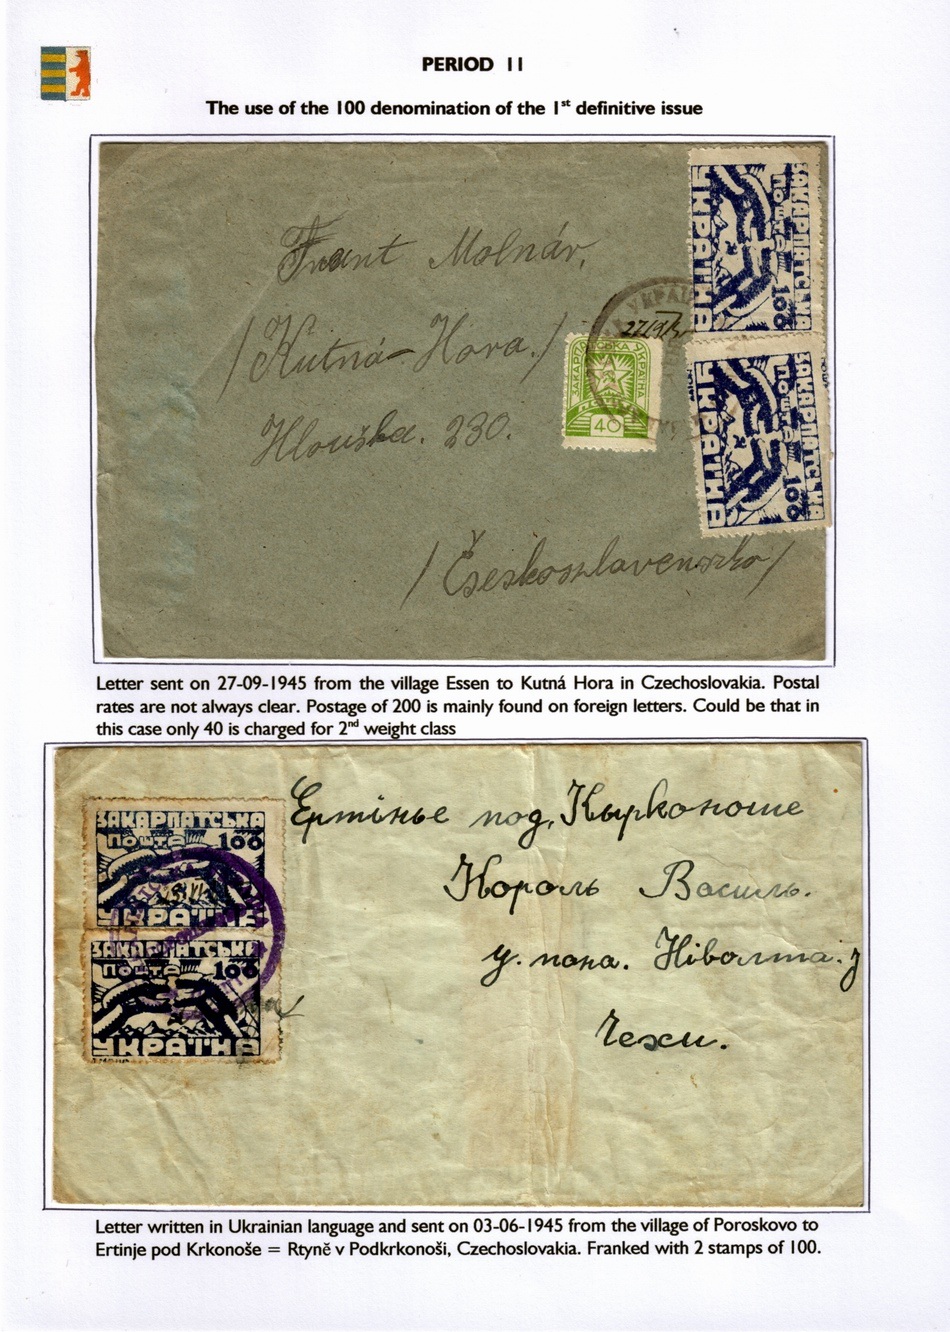 PERIOD 11
The use of the 100 denomination of the 1st definitive issue
Frant Molnár,
/Kutná-Hora./
Hlouška. 230.
/Českoslavensko/
ЗАКАРПАТСЬКА
Пошта 100
УКРАЇНА
ЗАКАРПАТСЬКА
Пошта 100
УКРАЇНА
ЗАКАРПАТСЬКА УКРАЇНА
ПОШТА
40
Letter sent on 27-09-1945 from the village Essen to Kutná Hora in Czechoslovakia. Postal
rates are not always clear. Postage of 200 is mainly found on foreign letters. Could be that in
this case only 40 is charged for 2nd weight class
ЗАКАРПАТСЬКА
Пошта 100
УКРАЇНА
ЗАКАРПАТСЬКА
Пошта 100
УКРАЇНА
Ертінье под Кырконоше
Король Василь.
у. пана.
Чехи.
Letter written in Ukrainian language and sent on 03-06-1945 from the village of Poroskovo to
Ertinje pod Krkonoše = Rtyně v Podkrkonoši, Czechoslovakia. Franked with 2 stamps of 100.